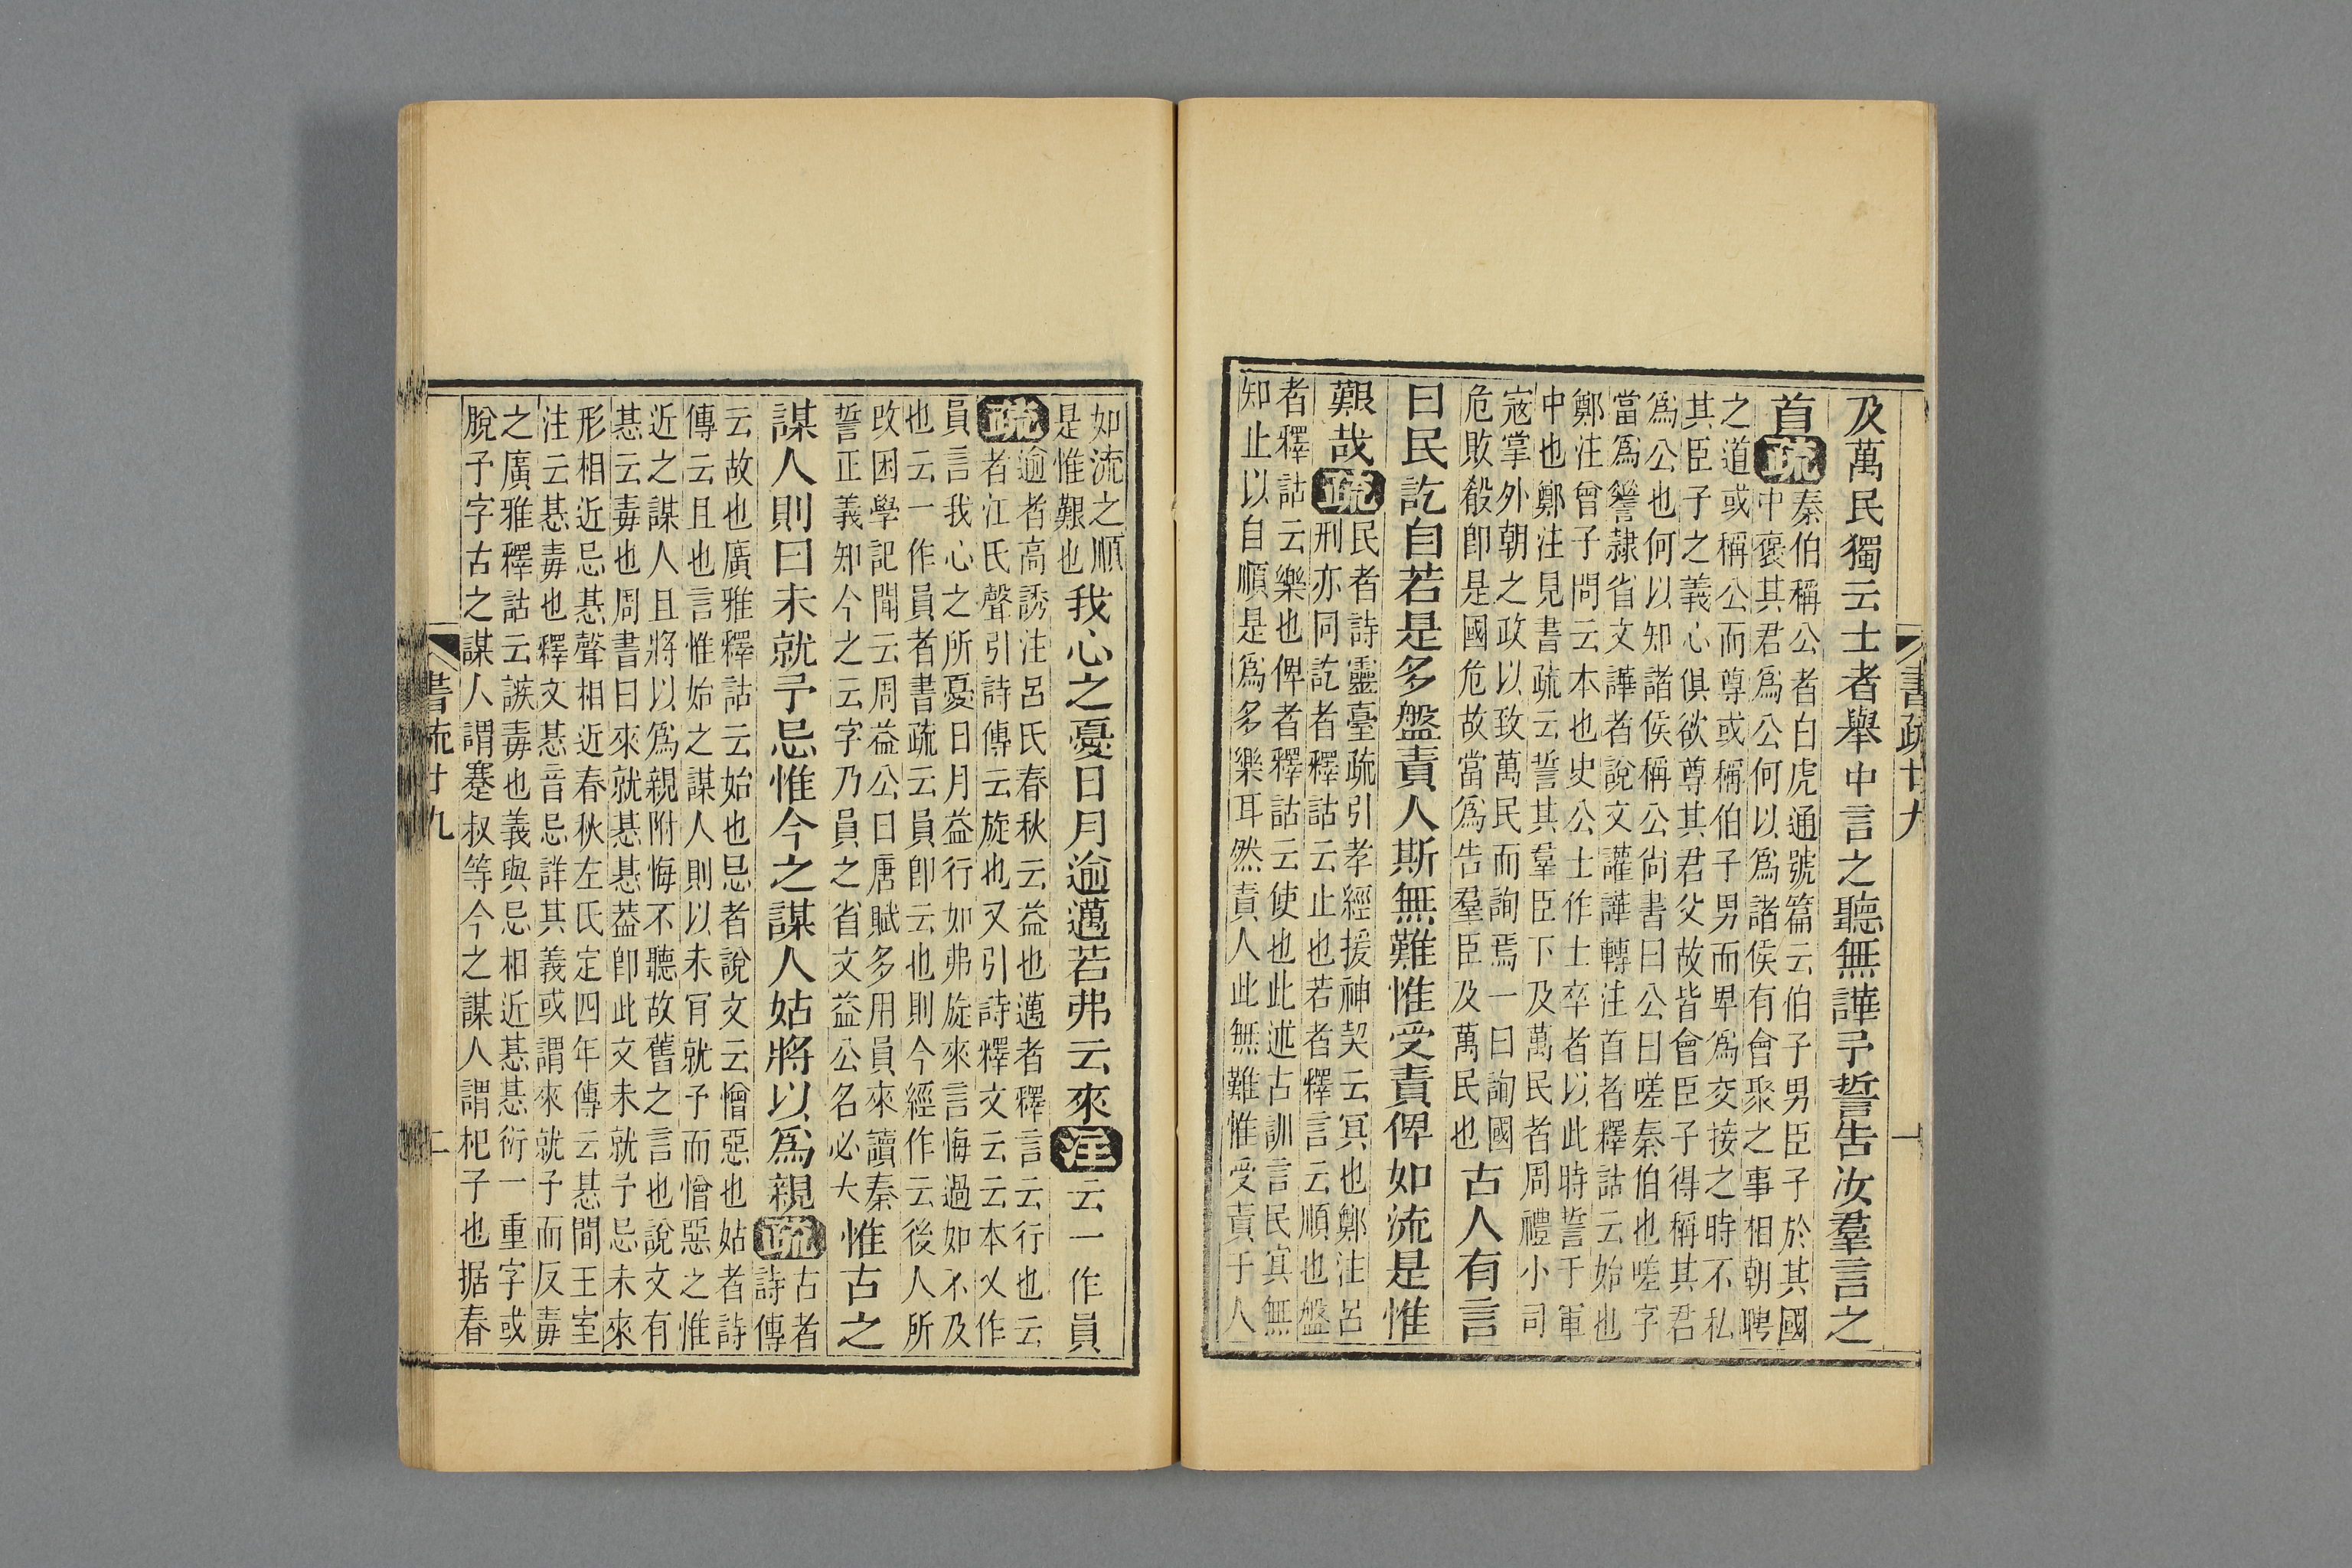 書疏廿九
一
及萬民獨云士者舉中言之聽無譁予誓告汝羣言之
首疏秦伯稱公者白虎通號篇云伯子男臣子於其國
中褒其君爲公何以爲諸侯有會聚之事相朝聘
之道或稱公而尊或稱伯子男而畢爲交接之時不私
其臣子之義心俱欲尊其君父故皆會臣子得稱其君
爲公也何以知諸侯稱公尚書曰公曰嗟秦伯也嗟字
當爲䜅隸省文譁者說文讙譁轉注首者釋詁云始也
鄭注曾子問云本也史公士作士卒者以此時誓于軍
中也鄭注見書疏云誓其羣臣下及萬民者周禮小司
寇掌外朝之政以致萬民而詢焉一曰詢國
危敗殽卽是國危故當爲告羣臣及萬民也古人有言
曰民訖自若是多盤責人斯無難惟受責俾如流是惟
艱哉疏民者詩靈臺疏引孝經援神契云冥也鄭注呂
刑亦同訖者釋詁云止也若者釋言云順也盤
者釋詁云樂也俾者釋詁云使也此述古訓言民冥無
知止以自順是爲多樂耳然責人此無難惟受責于人
如流之順
是惟艱也我心之憂日月逾邁若弗云來注云一作員
疏逾者高誘注呂氏春秋云益也邁者釋言云行也云
者江氏聲引詩傳云旋也又引詩釋文云云本乂作
員言我心之所憂日月益行如弗旋來言悔過如不及
也云一作員者書疏云員卽云也則今經作云後人所
改困學記聞云周益公曰唐賦多用員來讀秦
誓正義知今之云字乃員之省文益公名必大惟古之
謀人則曰未就予忌惟今之謀人姑將以爲親疏古者
詩傳
云故也廣雅釋詁云始也忌者說文云憎惡也姑者詩
傳云且也言惟始之謀人則以未肎就予而憎惡之惟
近之謀人且將以爲親附悔不聽故舊之言也說文有
惎云毒也周書曰來就惎惎葢卽此文未就予忌未來
形相近忌惎聲相近春秋左氏定四年傳云惎間王室
注云惎毒也釋文惎音忌詳其義或謂來就予而反毒
之廣雅釋詁云諔毒也義與忌相近惎惎衍一重字或
脫予字古之謀人謂蹇叔等今之謀人謂杞子也据春
書疏廿九
二